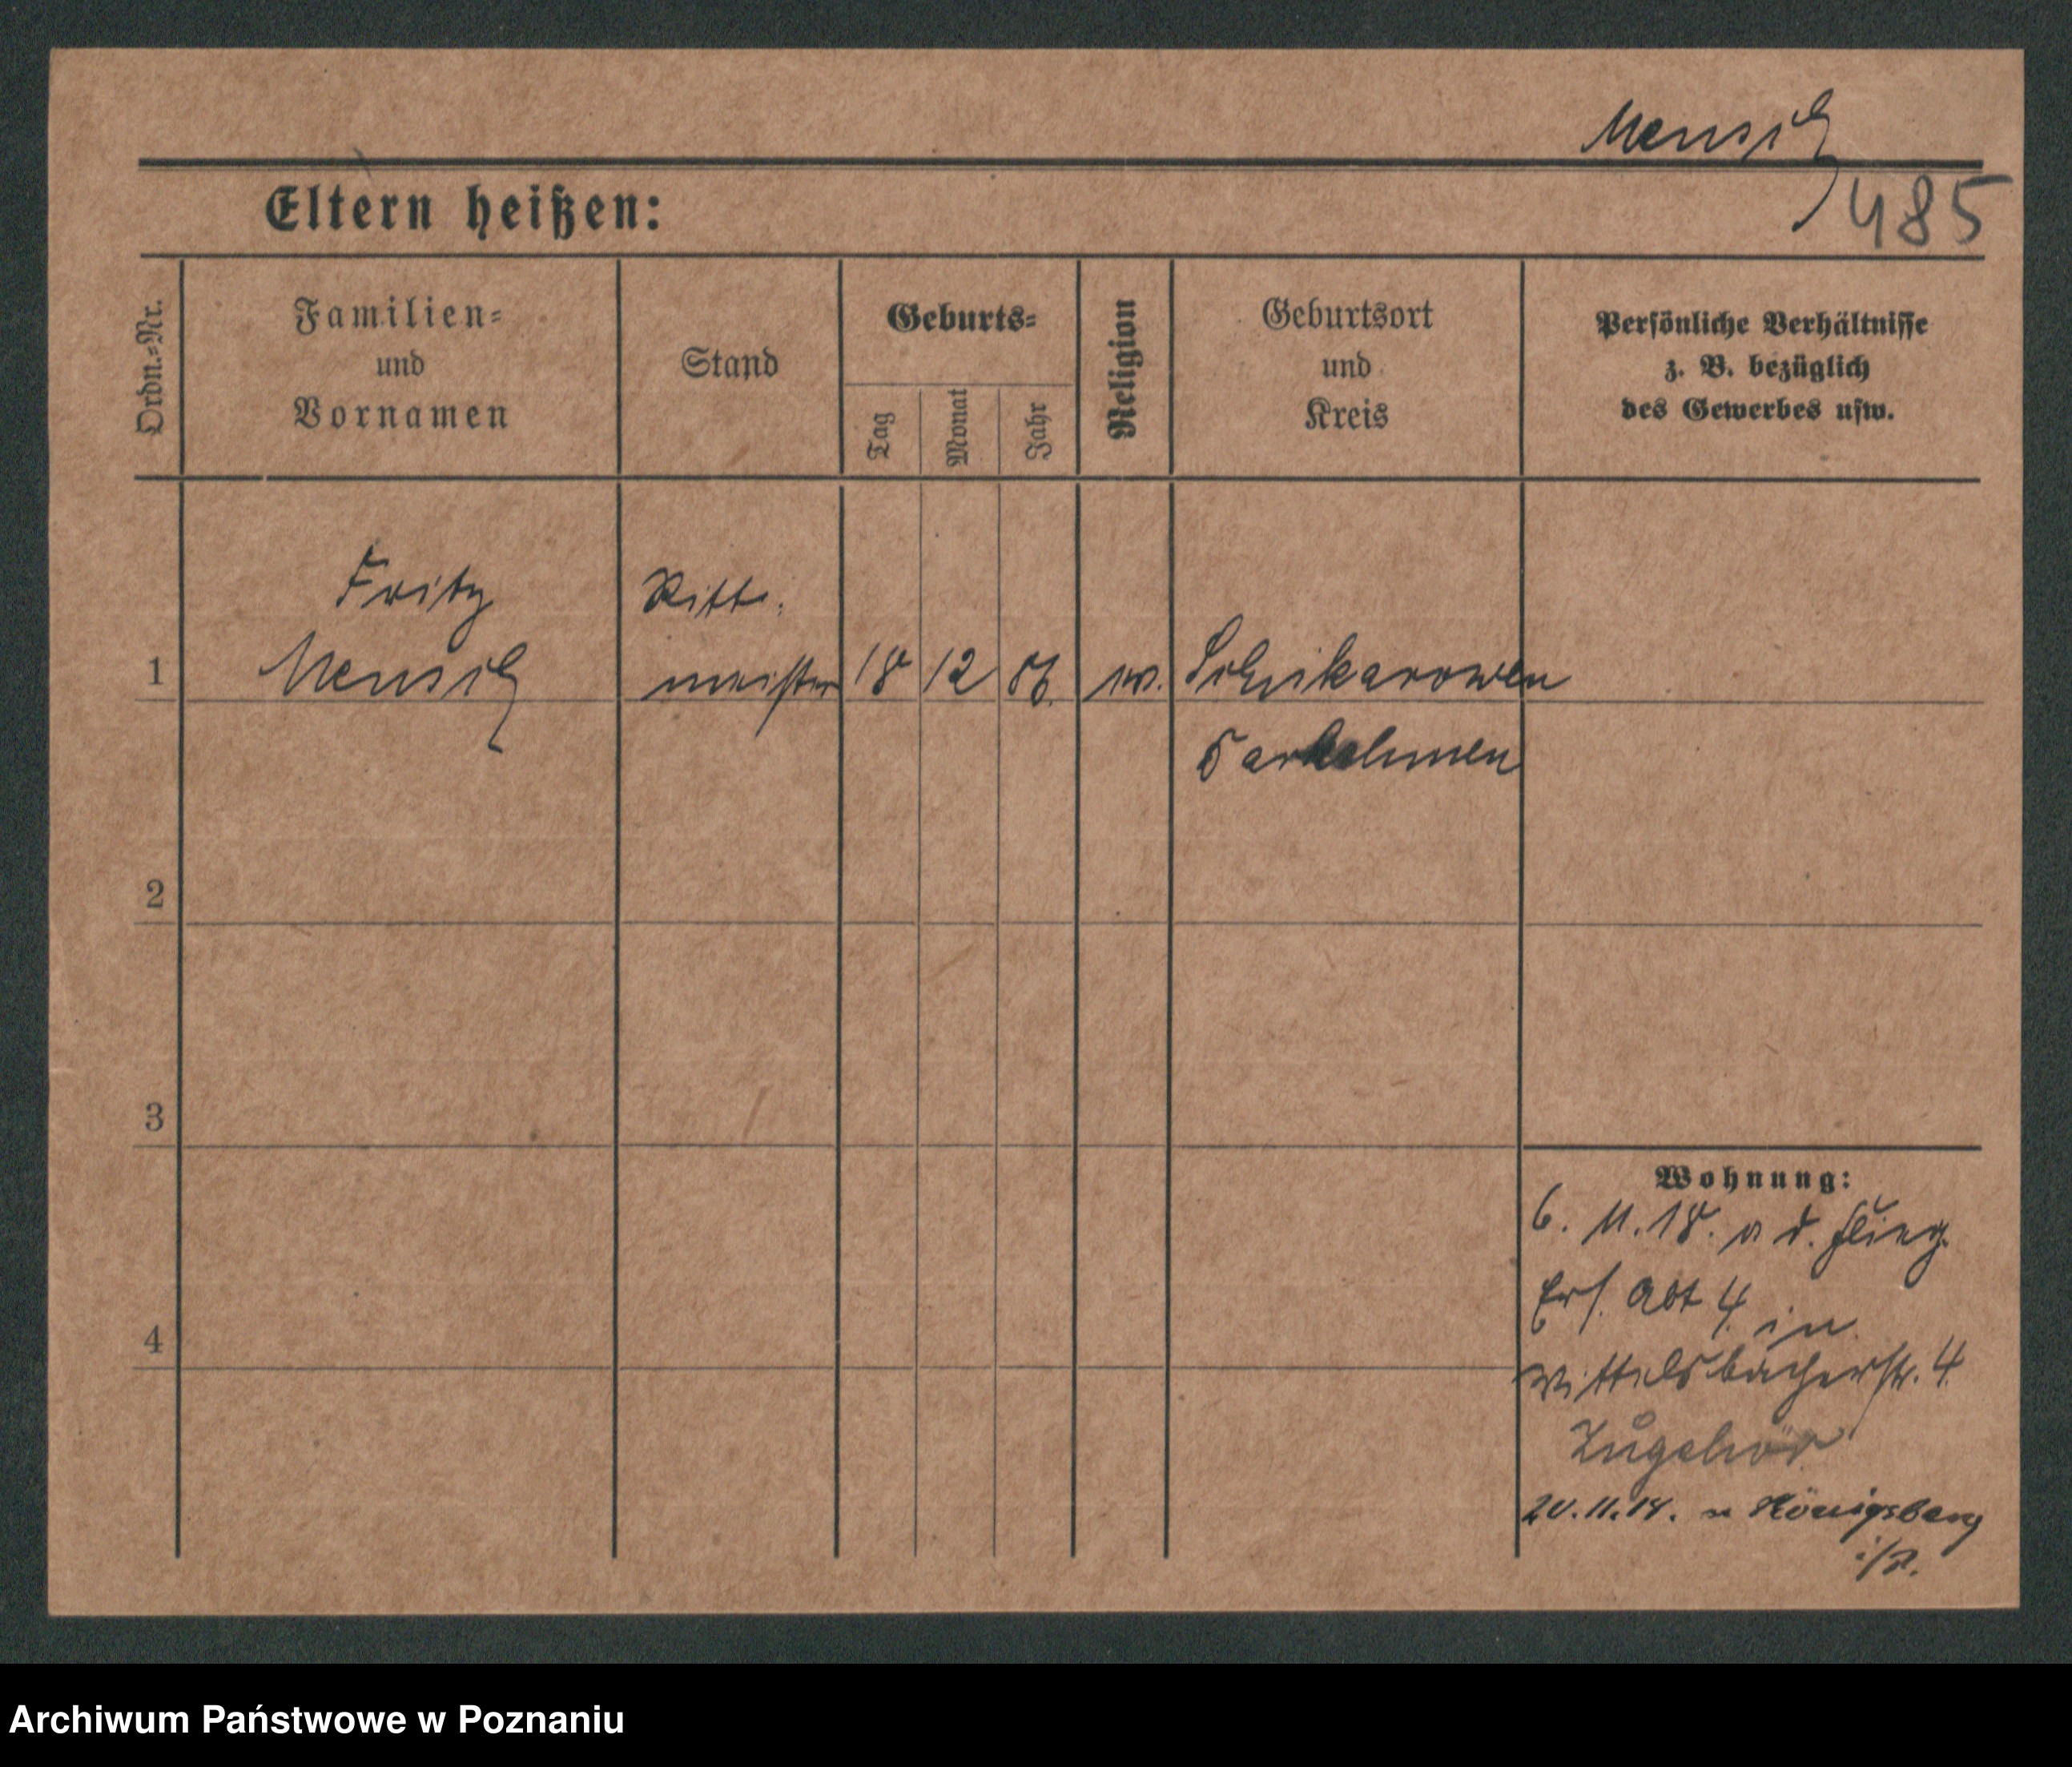 Mensch
485
Eltern heißen:
Ordn.-Nr.
Familien-
und
Vornamen
Stand
Geburts-
Tag
Monat
Jahr
Religion
Geburtsort
und
Kreis
Persönliche Verhältnisse
z. B. bezüglich
des Gewerbes usw.
Fritz
Ritt-
1
meister 18 12 86. ev.
Darkehmen
2
3
Wohnung:
6. 11. 18. v d. Flieg.
Ers. Abt 4. in
4
Wittelsbacherstr. 4
Zugehör
20.11.18. n Königsberg
i/P.
Archiwum Państwowe w Poznaniu